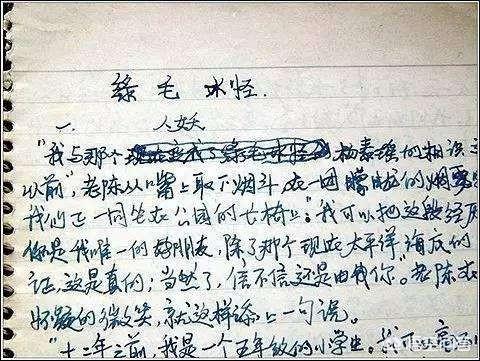 绿毛水怪.
一. 人妖
"我与那个现在变成了绿毛水怪的杨素瑶的相识
以前"老陈从嘴上取下烟斗,在一团朦胧的烟雾
我们正一同坐在公园的长椅上:"我可以把这段经历
你是我唯一的好朋友,除了那个现在太平洋海底的
证,这是真的;当然了,信不信还是由我你."老陈在
狡疑的微笑,就这样添上一句说。
"十二年之前,我是一个五年级的小学生。我可